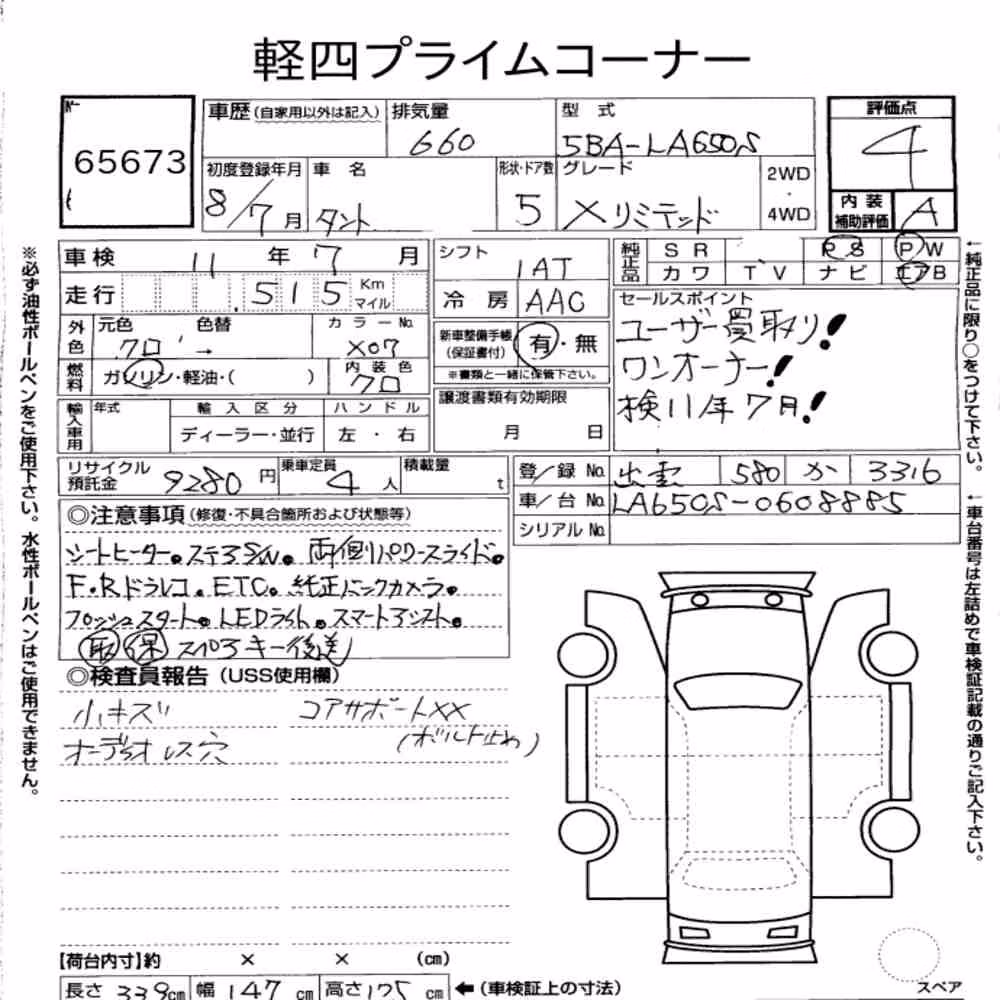 軽四プライムコーナー
65673
車歴(自家用以外は記入) 排気量 型式 評価点
660 5BA-LA650S 4
初度登録年月 車名 形状・ドア数 グレード 2WD・4WD 内装補助評価
8/7月 タント 5 Xリミテッド A
車検 11年7月
シフト IAT
純正品 SR PS PW
カワ TV ナビ エアB
走行 515 Km マイル
冷房 AAC
セールスポイント
ユーザー買取り!
ワンオーナー!
検11年7月!
外色 元色 色替 カラーNo.
クロ → X07
新車整備手帳(保証書付) 有・無
※書類と一緒に保管下さい。
燃料 ガソリン・軽油・( ) 内装色 クロ
譲渡書類有効期限
月 日
輸入車用 年式 輸入区分 ハンドル
ディーラー・並行 左・右
リサイクル預託金 9280円 乗車定員 4人 積載量 t
登/録No. 出雲 580 か 3316
車/台No. LA650S-0608885
シリアルNo.
◎注意事項(修復・不具合箇所および状態等)
シートヒーター。ステアS/W。両側パワースライド。
F・Rドラレコ。ETC。純正バックカメラ。
プッシュスタート。LEDライト。スマートアシスト。
取 保 スペアキー後送
◎検査員報告(USS使用欄)
小キズ コアサポートXX
(ボルト止め)
オーディオレス穴
【荷台内寸】約 × × (cm)
長さ 339cm 幅 147cm 高さ 175cm ←(車検証上の寸法)
スペア
※必ず油性ボールペンをご使用下さい。水性ボールペンはご使用できません。
←純正品に限り○をつけて下さい。
←車台番号は左詰めで車検証記載の通りご記入下さい。